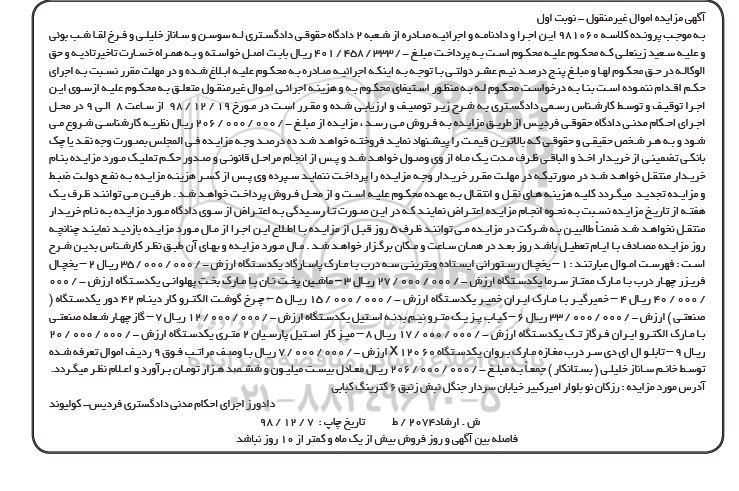 آگهی مزایده اموال غیرمنقول - نوبت اول
به موجب پرونده کلاسه ۹۸۱۰۶۰ این اجرا و دادنامه و اجرائیه صادره از شعبه ۲ دادگاه حقوقی دادگستری له سوسن و ساناز خلیلی و فرخ لقا شب بوئی
و علیه سعید زینعلی که محکوم علیه محکوم است به پرداخت مبلغ -/۴۰۱/۴۵۸/۳۳۳ ریال بابت اصل خواسته و به همراه خسارت تاخیر تادیه و حق
الوکاله در حق محکوم لها و مبلغ پنج درصد نیم عشر دولتی با توجه به اینکه اجرائیه صادره به محکوم علیه ابلاغ شده و در مهلت مقرر نسبت به اجرای
حکم اقدام ننموده است بنا به درخواست محکوم له به منظور استیفای محکوم به و هزینه اجرائی اموال غیرمنقول متعلق به محکوم علیه از سوی این
اجرا توقیف و توسط کارشناس رسمی دادگستری به شرح زیر توصیف و ارزیابی شده و مقرر است در مورخ ۹۸/۱۲/۱۹ از ساعت ۸ الی ۹ در محل
اجرای احکام مدنی دادگاه حقوقی فردیس از طریق مزایده به فروش می رسد ، مزایده از مبلغ -/۲۰۶/۰۰۰/۰۰۰ ریال نظریه کارشناسی شروع می
شود و به هر شخص حقیقی و حقوقی که بالاترین قیمت را پیشنهاد نماید فروخته خواهد شد ده درصد وجه مزایده فی المجلس بصورت وجه نقد یا چک
بانکی تضمینی از خریدار اخذ و الباقی ظرف مدت یک ماه از وی وصول خواهد شد و پس از انجام مراحل قانونی و صدور حکم تملیک مورد مزایده بنام
خریدار منتقل خواهد شد در صورتیکه در مهلت مقرر خریدار وجه مزایده را پرداخت ننماید سپرده وی پس از کسر هزینه مزایده به نفع دولت ضبط
و مزایده تجدید میگردد کلیه هزینه های نقل و انتقال به عهده محکوم علیه است و از محل فروش پرداخت خواهد شد . طرفین می توانند ظرف یک
هفته از تاریخ مزایده نسبت به نحوه انجام مزایده اعتراض نمایند که در این صورت تا رسیدگی به اعتراض از سوی دادگاه مورد مزایده به نام خریدار
منتقل نخواهد شد ضمناً طالبین به شرکت در مزایده می توانند ظرف ۵ روز قبل از مزایده با اطلاع این اجرا از مال مورد مزایده بازدید نمایند چنانچه
روز مزایده مصادف با ایام تعطیل باشد روز بعد در همان ساعت و مکان برگزار خواهد شد . مال مورد مزایده و بهای آن طبق نظر کارشناس بدین شرح
است : فهرست اموال عبارتند : ۱- یخچال رستورانی ایستاده ویترینی سه درب با مارک پاسارگاد یکدستگاه ارزش -/۳۵/۰۰۰/۰۰۰ ریال ۲- یخچال
فریزر چهار درب با مارک ممتاز سرما یکدستگاه ارزش -/۲۷/۰۰۰/۰۰۰ ریال ۳- ماشین پخت نان با مارک بخت پهلوانی یکدستگاه ارزش -/۰۰۰
/۴۰/۰۰۰ ریال ۴- خمیرگیر با مارک ایران خمیر یکدستگاه ارزش -/۱۵/۰۰۰/۰۰۰ ریال ۵- چرخ گوشت الکترو کار دینام ۴۲ دور یکدستگاه (
صنعتی ) ارزش -/۳۳/۰۰۰/۰۰۰ ریال ۶- کباب پز یک متر و نیم بدنه استیل یکدستگاه ارزش -/۱۲/۰۰۰/۰۰۰ ریال ۷- گاز چهار شعله صنعتی
با مارک الکترو ایران فرگاز تک یکدستگاه ارزش -/۱۷/۰۰۰/۰۰۰ ریال ۸- میز کار استیل پارسیان ۲ متری یکدستگاه ارزش -/۲۰/۰۰۰/۰۰۰
ریال ۹- تابلو ال ای دی سر درب مغازه مارک بروان یکدستگاه ۶۰ X ۱۲۰ ارزش -/۷/۰۰۰/۰۰۰ ریال با وصف مراتب فوق ۹ ردیف اموال تعرفه شده
توسط خانم ساناز خلیلی ( بستانکار ) جمعاً به مبلغ -/۲۰۶/۰۰۰/۰۰۰ ریال معادل بیست میلیون و ششصد هزار تومان برآورد و اعلام نظر میگردد.
آدرس مورد مزایده : رزکان نو بلوار امیرکبیر خیابان سردار جنگل نبش زنبق ۶ کترینگ کبابی
دادورز اجرای احکام مدنی دادگستری فردیس- کولیوند
ش . ارشاد۲۰۷۴/ ط تاریخ چاپ : ۹۸/۱۲/۷
فاصله بین آگهی و روز فروش بیش از یک ماه و کمتر از ۱۰ روز نباشد
۰۲۱-۸۸۳۴۹۶۷۰-۵